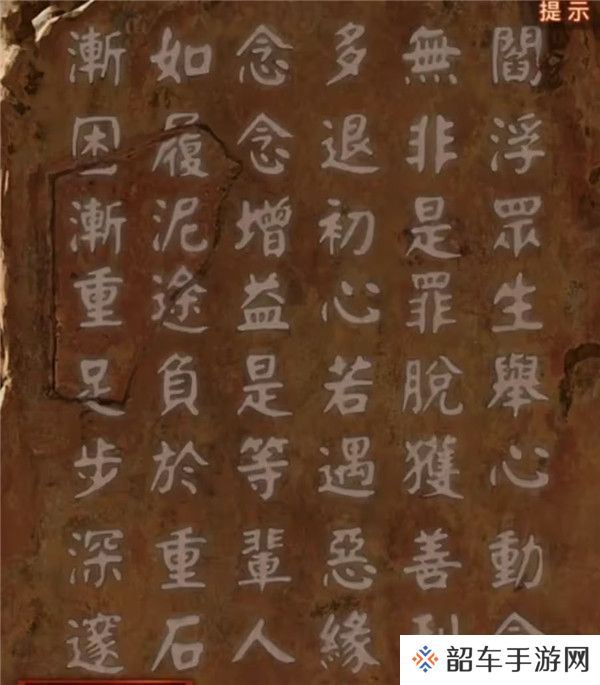 提示
閻浮眾生舉心動念
無非是罪脫獲善利
多退初心若遇惡緣
念念增益是等輩人
如履泥途負於重石
漸困漸重足步深邃
韶车手游网